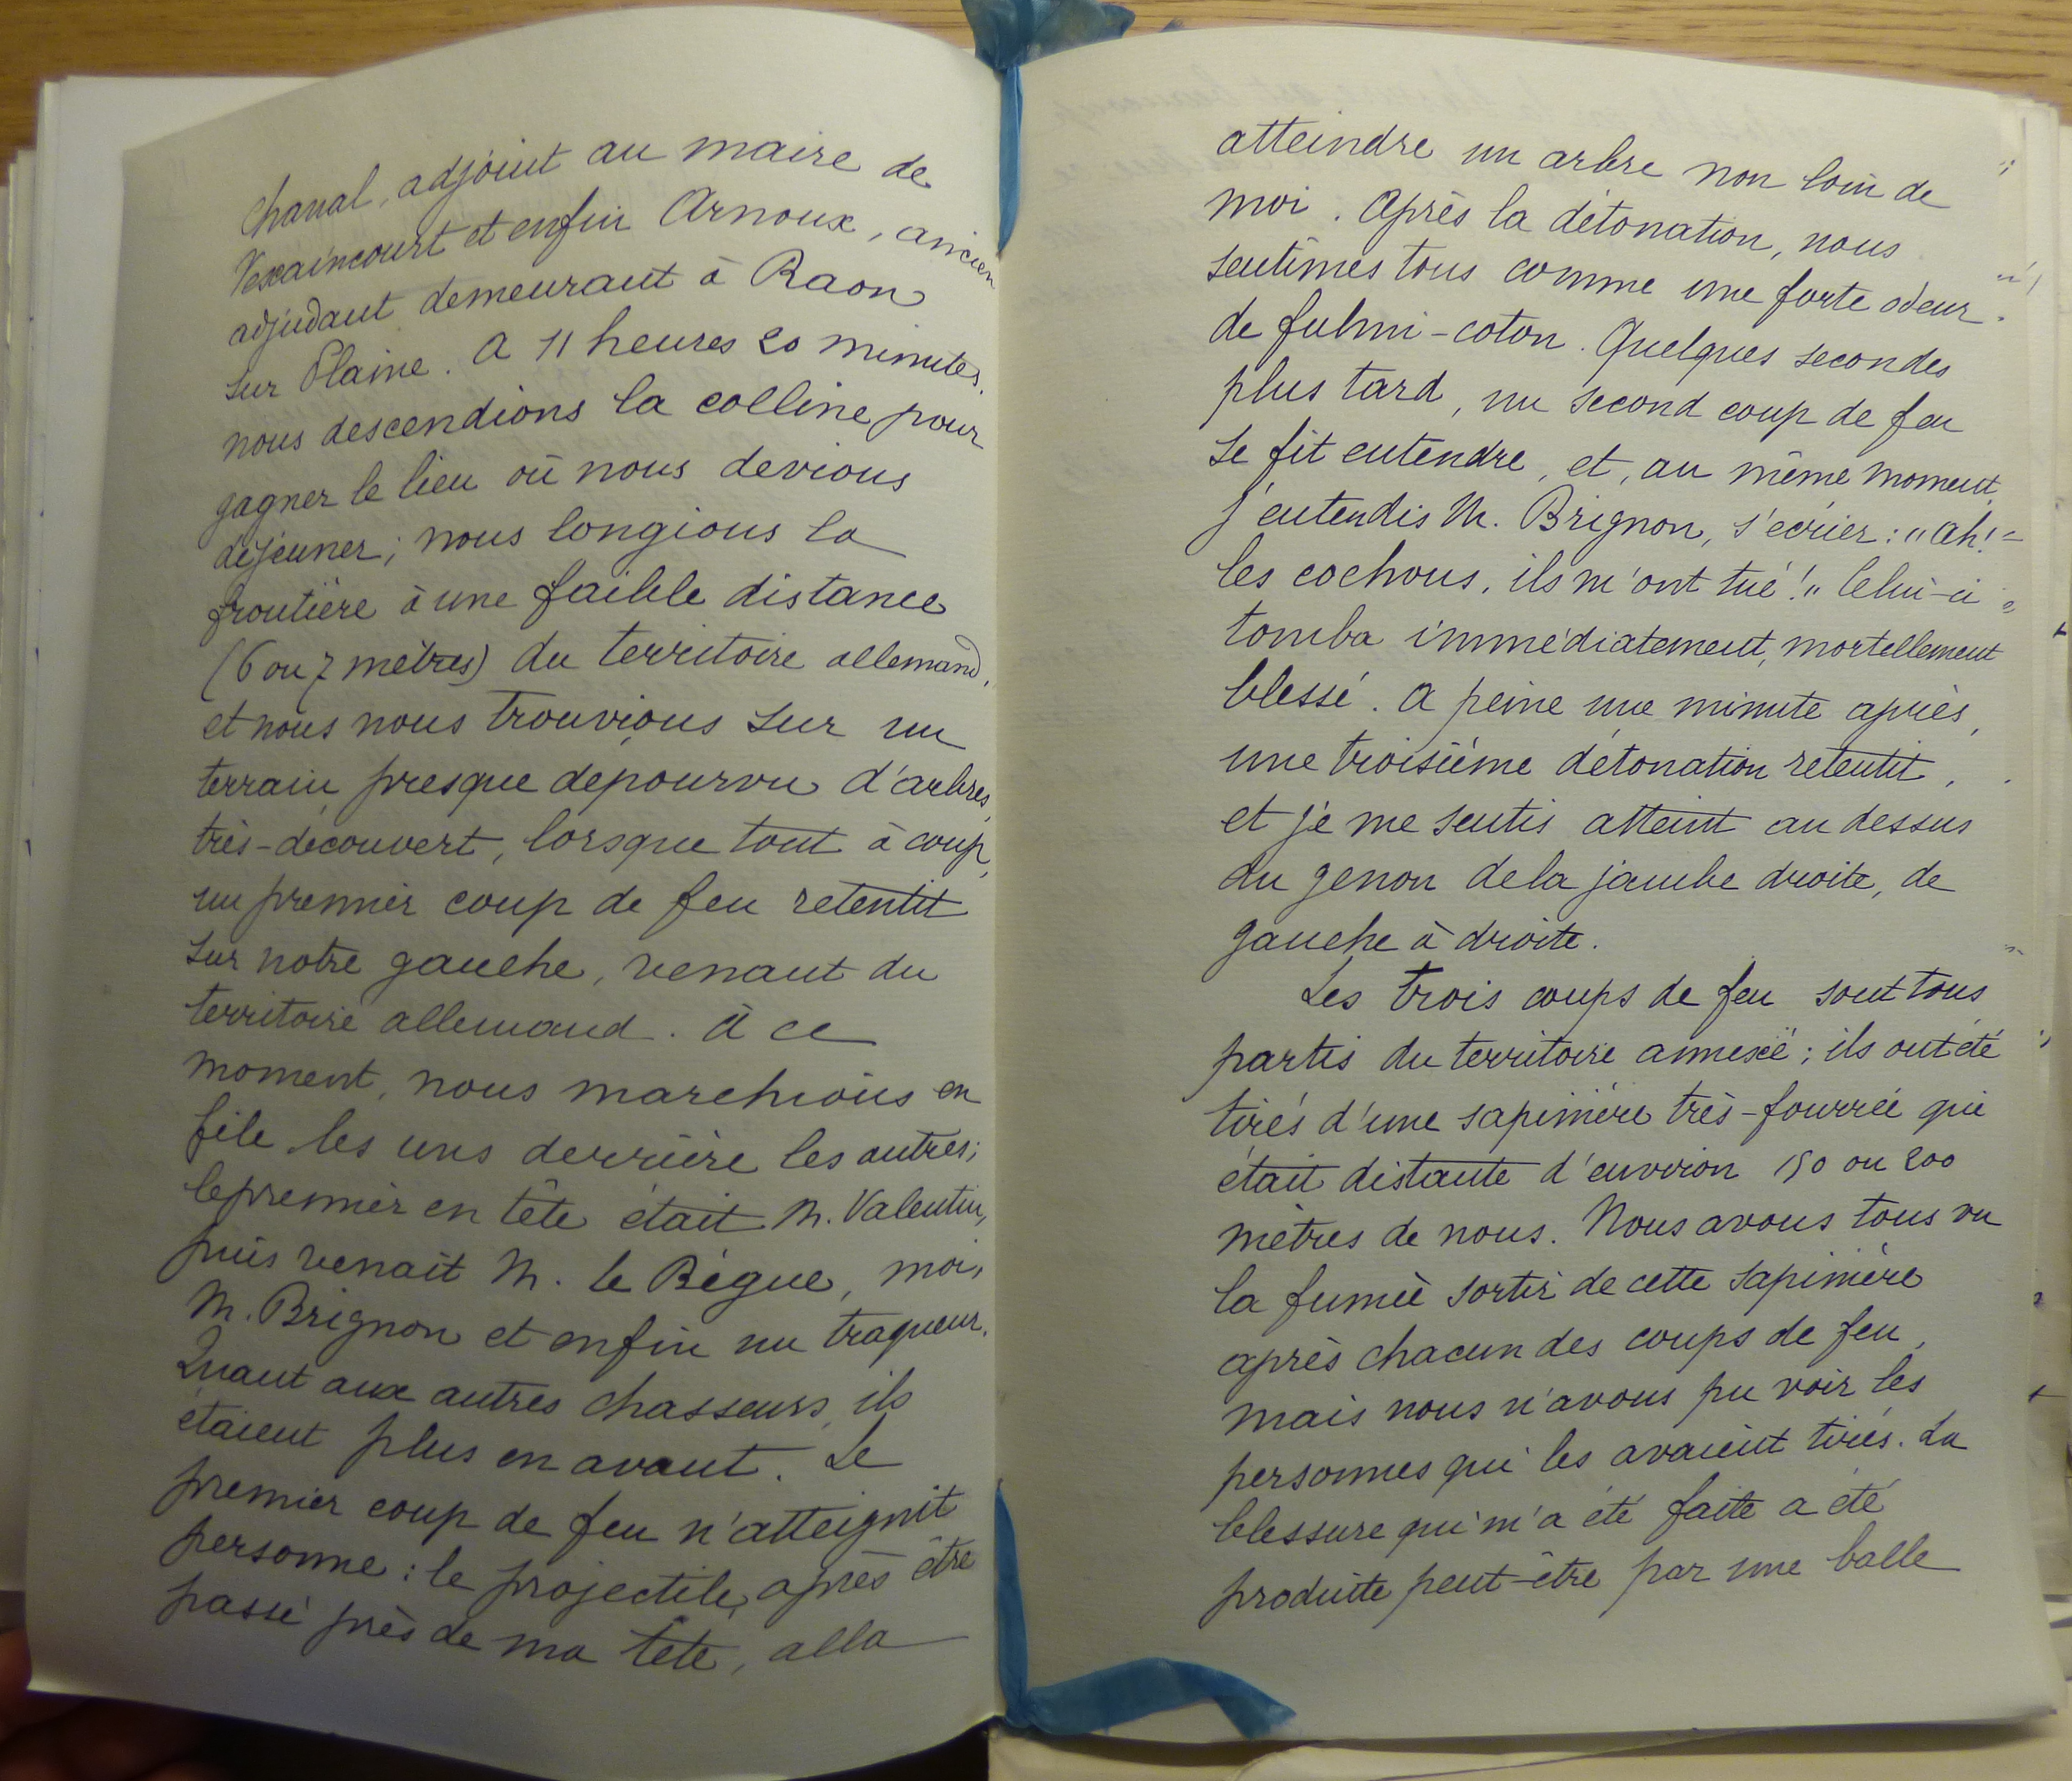 Chanal, adjoint au maire de
Vexaincourt et enfin Arnoux, ancien
adjudant demeurant à Raon
sur Plaine. A 11 heures 20 minutes,
nous descendions la colline pour
gagner le lieu où nous devions
déjeuner; nous longions la
frontière à une faible distance
(6 ou 7 mètres) du territoire allemand,
et nous nous trouvions sur un
terrain presque depourvu d'arbres,
très-découvert, lorsque tout à coup,
un premier coup de feu retentit
sur notre gauche, venant du
territoire allemand. à ce
moment, nous marchions en
file les uns derrière les autres;
le premier en tête était M. Valentin,
puis venait M. le Bègue, moi,
M. Brignon et enfin un traqueur.
Quant aux autres chasseurs, ils
étaient plus en avant. Le
premier coup de feu n'atteignit
personne: le projectile, après être
passé près de ma tête, alla
atteindre un arbre non loin de
moi. Après la détonation, nous
sentîmes tous comme une forte odeur
de fulmi-coton. Quelques secondes
plus tard, un second coup de feu
se fit entendre, et, au même moment,
j'entendis M. Brignon, s'écrier: "Ah!
les cochons, ils m'ont tué!" Celui-ci
tomba immédiatement, mortellement
blessé. A peine une minute après,
une troisième détonation retentit,
et je me sentis atteint au dessus
du genou de la jambe droite, de
gauche à droite.
Les trois coups de feu sont tous
partis du territoire annexé; ils ont été
tirés d'une sapinière très-fourrée qui
était distante d'environ 150 ou 200
mètres de nous. Nous avons tous vu
la fumée sortir de cette sapinière
après chacun des coups de feu,
mais nous n'avons pu voir les
personnes qui les avaient tirés. La
blessure qui m'a été faite a été
produite peut-être par une balle